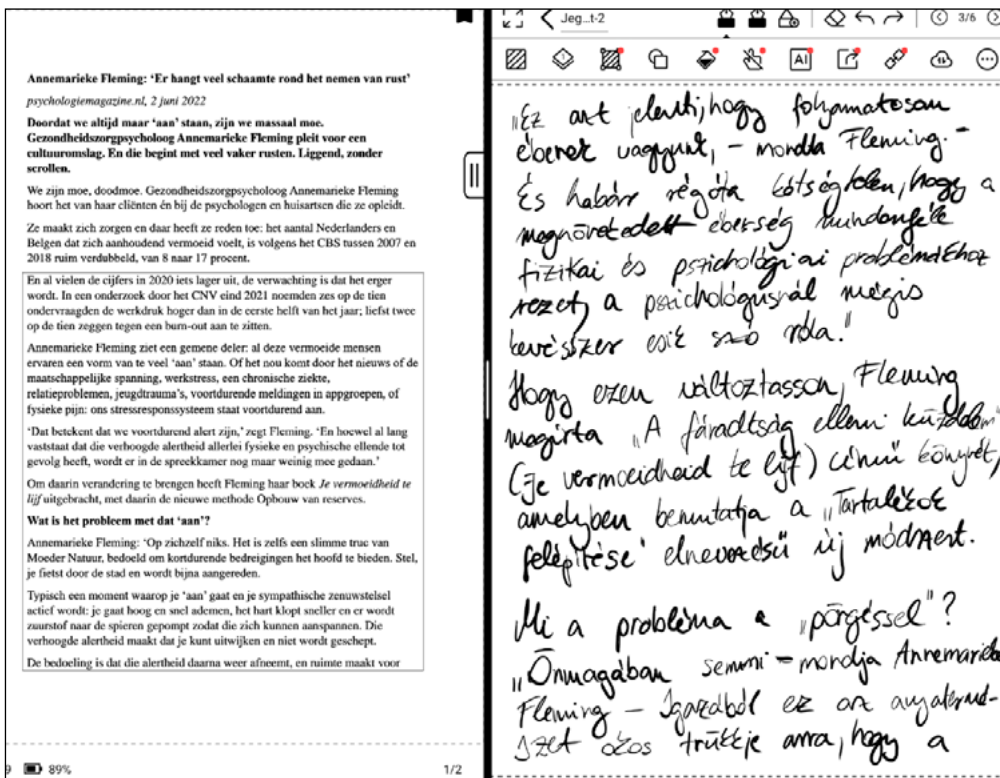 Annemarieke Fleming: ‘Er hangt veel schaamte rond het nemen van rust’
psychologiemagazine.nl, 2 juni 2022
Doordat we altijd maar ‘aan’ staan, zijn we massaal moe.
Gezondheidszorgpsycholoog Annemarieke Fleming pleit voor een
cultuuromslag. En die begint met veel vaker rusten. Liggend, zonder
scrollen.
We zijn moe, doodmoe. Gezondheidszorgpsycholoog Annemarieke Fleming
hoort het van haar cliënten én bij de psychologen en huisartsen die ze opleidt.
Ze maakt zich zorgen en daar heeft ze reden toe: het aantal Nederlanders en
Belgen dat zich aanhoudend vermoeid voelt, is volgens het CBS tussen 2007 en
2018 ruim verdubbeld, van 8 naar 17 procent.
En al vielen de cijfers in 2020 iets lager uit, de verwachting is dat het erger
wordt. In een onderzoek door het CNV eind 2021 noemden zes op de tien
ondervraagden de werkdruk hoger dan in de eerste helft van het jaar; liefst twee
op de tien zeggen tegen een burn-out aan te zitten.
Annemarieke Fleming ziet een gemene deler: al deze vermoeide mensen
ervaren een vorm van te veel ‘aan’ staan. Of het nu komt door het nieuws of de
maatschappelijke spanning, werkstress, een chronische ziekte,
relatieproblemen, jeugdtrauma’s, voortdurende meldingen in appgroepen, of
fysieke pijn: ons stressresponssysteem staat voortdurend aan.
‘Dat betekent dat we voortdurend alert zijn,’ zegt Fleming. ‘En hoewel al lang
vaststaat dat die verhoogde alertheid allerlei fysieke en psychische ellende tot
gevolg heeft, wordt er in de spreekkamer nog maar weinig mee gedaan.’
Om daarin verandering te brengen heeft Fleming haar boek Je vermoeidheid te
lijf uitgebracht, met daarin de nieuwe methode Opbouw van reserves.
Wat is het probleem met dat ‘aan’?
Annemarieke Fleming: ‘Op zichzelf niks. Het is zelfs een slimme truc van
Moeder Natuur, bedoeld om kortdurende bedreigingen het hoofd te bieden. Stel,
je fietst door de stad en wordt bijna aangereden.
Typisch een moment waarop je ‘aan’ gaat en je sympathische zenuwstelsel
actief wordt: je gaat hoog en snel ademen, het hart klopt sneller en er wordt
zuurstof naar de spieren gepompt zodat die zich kunnen aanspannen. Die
verhoogde alertheid maakt dat je kunt uitwijken en niet wordt geschept.
De bedoeling is dat die alertheid daarna weer afneemt, en ruimte maakt voor
9 89%
1/2
Jeg...t-2
3/6
AI
„Ez azt jelenti, hogy folyamatosan
éberek vagyunk, – mondta Fleming. –
És habár régóta kétségtelen, hogy a
megnövekedett éberség mindenféle
fizikai és pszichológiai problémákhoz
vezet, a pszichológusnál mégis
kevésszer esik szó róla.”
Hogy ezen változtasson, Fleming
megírta „A fáradtság elleni küzdelem”
(Je vermoeidheid te lijf) című könyvét,
amelyben bemutatja a „Tartalékok
felépítése” elnevezésű új módszert.
Mi a probléma a „pörgéssel”?
„Önmagában semmi – mondja Annemarieke
Fleming – Igazából ez az anyatermé-
szet okos trükkje arra, hogy a